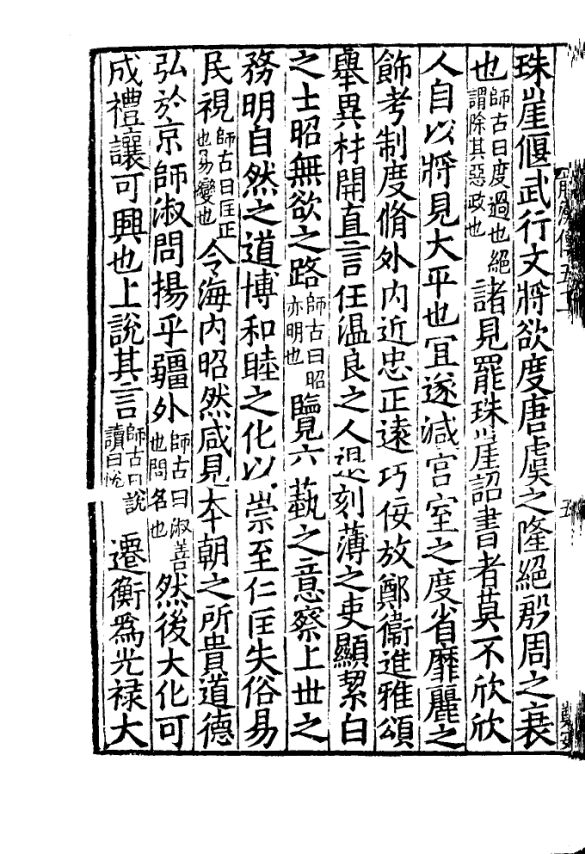 珠崖偃武行文將欲度唐虞之隆絕殷周之衰
也師古曰度過也絕謂除其惡政也諸見罷珠崖詔書者莫不欣欣
人自以將見大平也宜遂減宮室之度省靡麗之
飾考制度脩外内近忠正遠巧佞放鄭衞進雅頌
舉異材開直言任温良之人退刻薄之吏顯絜白
之士昭無欲之路師古曰昭亦明也覽六藝之意察上丗之
務明自然之道博和睦之化以崇至仁匡失俗易
民視師古曰匡正也易變也令海内昭然咸見本朝之所貴道德
弘於京師淑問揚乎疆外師古曰淑善也問名也然後大化可
成禮讓可興也上說其言師古曰說讀曰悅遷衡爲光禄大